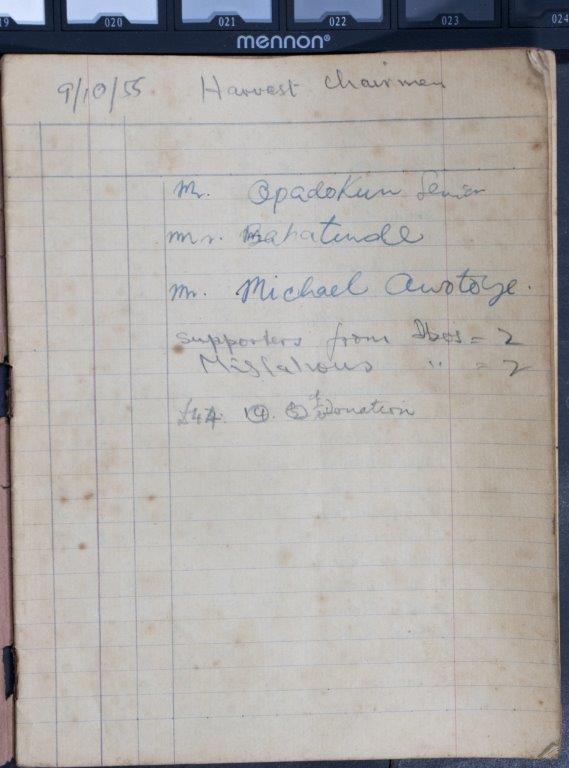 19 020 021 022 023 024
mennon®
9/10/55 Harvest Chairmen
Mr. Opadokun Senior
Mr. Babatunde
Mr. Michael Awotoye.
Supporters from Ibos = 2
" = 2
£44. Donation